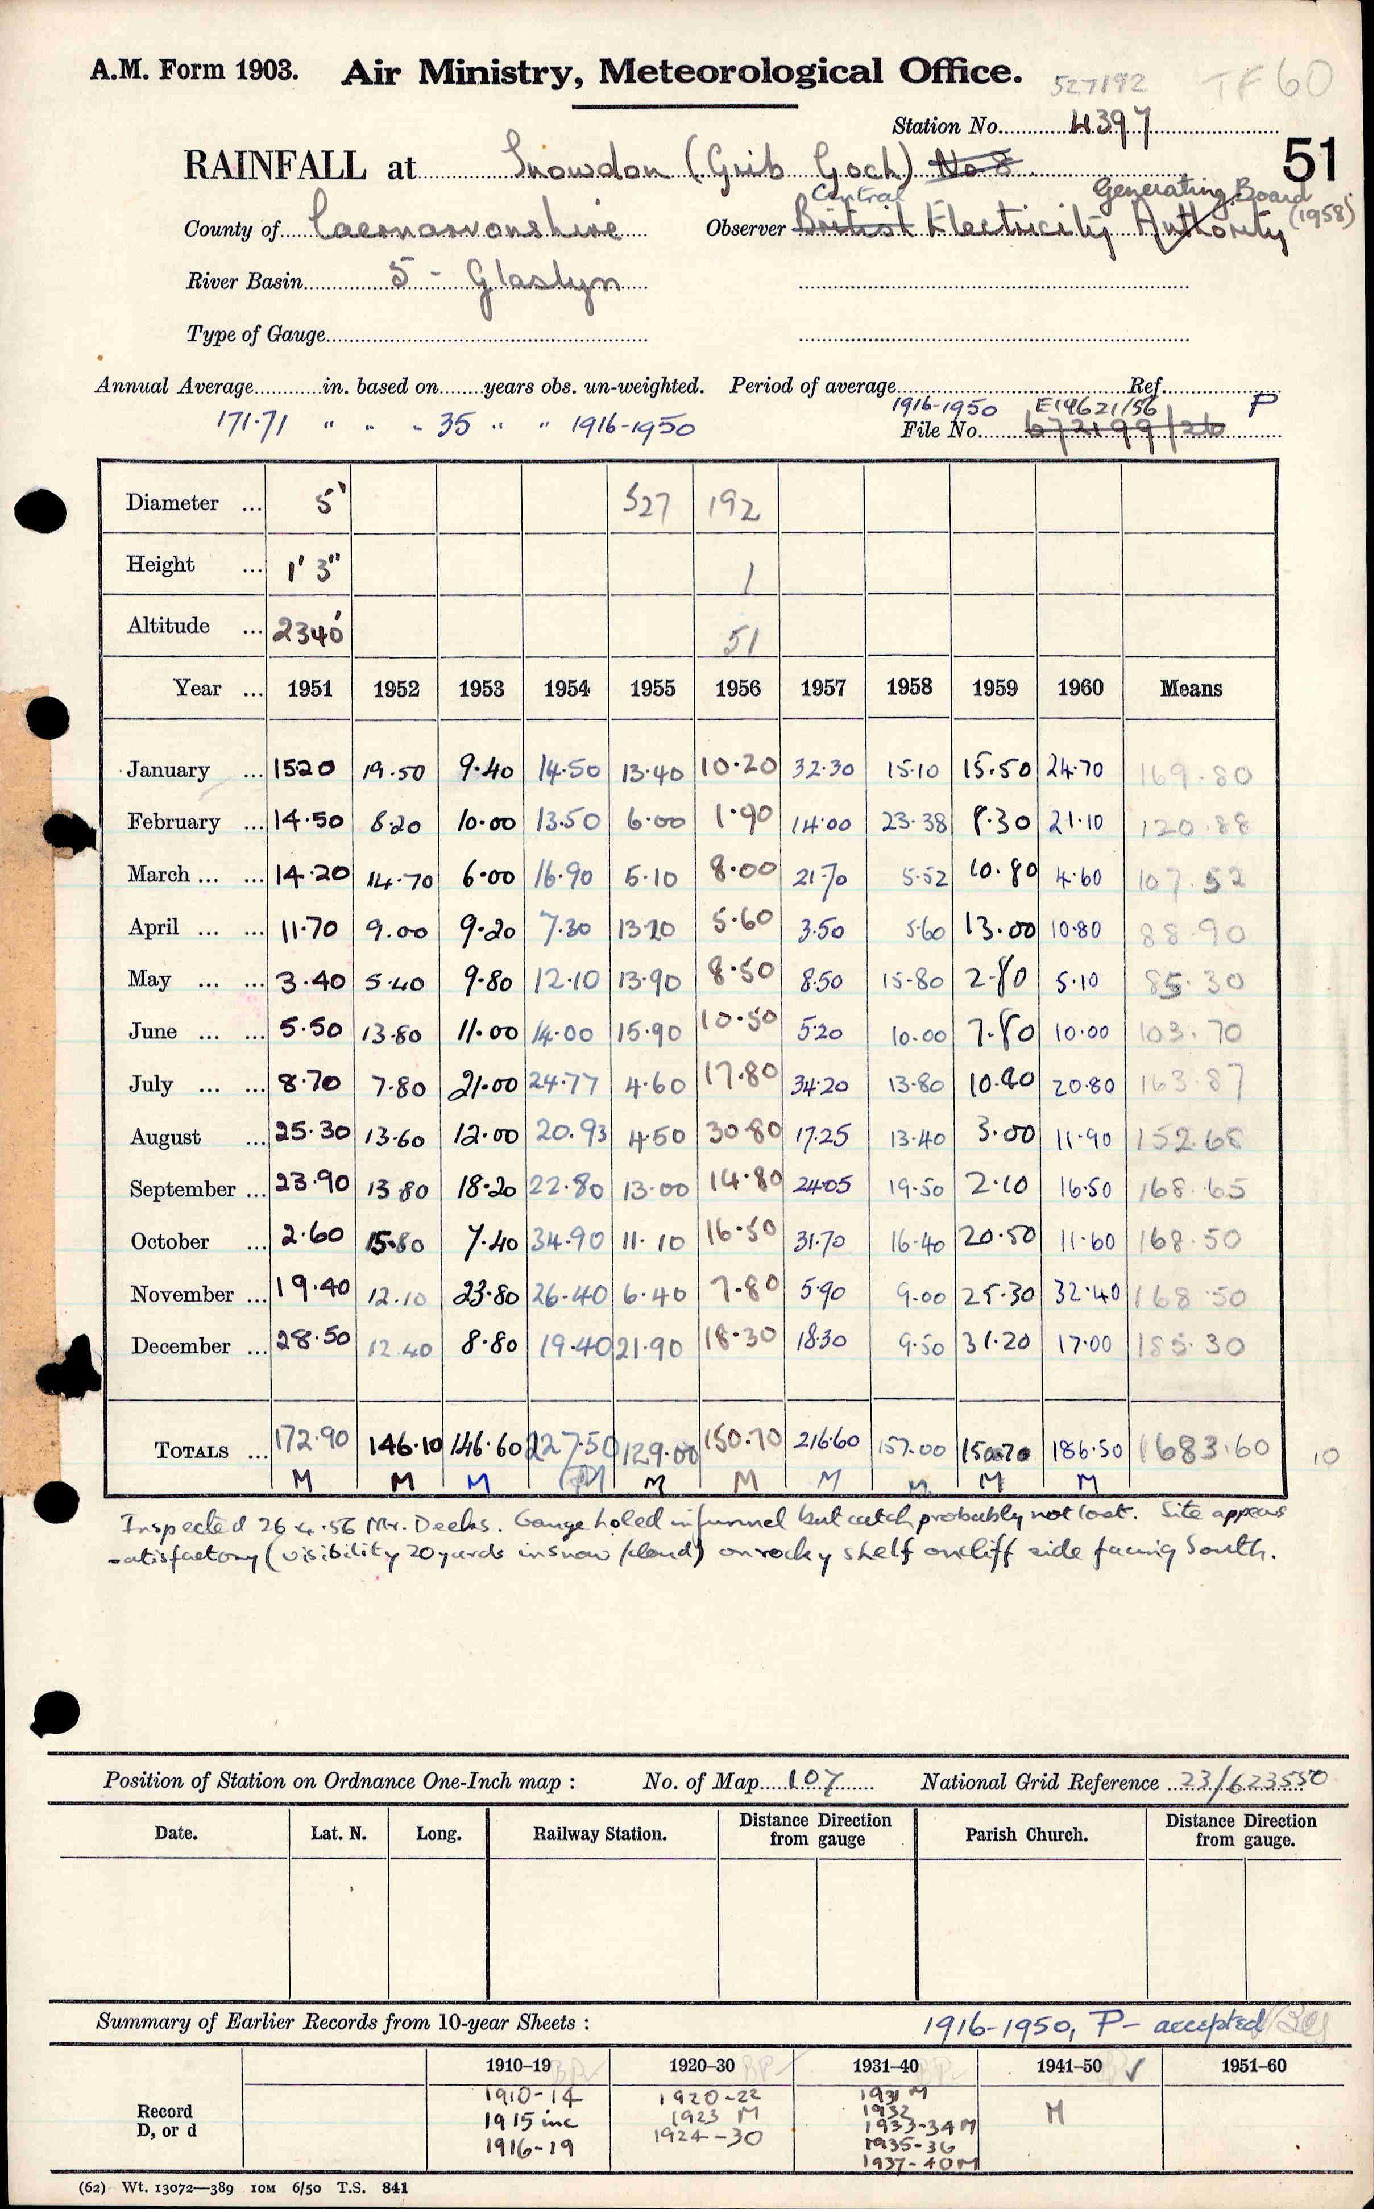 A.M. Form 1903. Air Ministry, Meteorological Office. 527192 TF 60
Station No. 4397
RAINFALL at Snowdon (Grib Goch) No 8 51
Central Generating Board
County of Caernarvonshire Observer British Electricity Authority (1958)
River Basin 5 - Glaslyn
Type of Gauge
Annual Average in. based on years obs. un-weighted. Period of average Ref.
171.71 " " " 35 " " 1916-1950 1916-1950 E19621/56 P
File No. 672199/26
Diameter ... 5" 527 192
Height ... 1' 3" 1
Altitude ... 2340' 51
Year ... 1951 1952 1953 1954 1955 1956 1957 1958 1959 1960 Means
January ... 15.20 19.50 9.40 14.50 13.40 10.20 32.30 15.10 15.50 24.70 169.80
February ... 14.50 8.20 10.00 13.50 6.00 1.90 14.00 23.38 8.30 21.10 120.88
March ... ... 14.20 14.70 6.00 16.90 5.10 8.00 21.70 5.52 10.80 4.60 107.52
April ... ... 11.70 9.00 9.20 7.30 13.20 5.60 3.50 5.60 13.00 10.80 88.90
May ... ... 3.40 5.40 9.80 12.10 13.90 8.50 8.50 15.80 2.80 5.10 85.30
June ... ... 5.50 13.80 11.00 14.00 15.90 10.50 5.20 10.00 7.80 10.00 103.70
July ... ... 8.70 7.80 21.00 24.77 4.60 17.80 34.20 13.80 10.40 20.80 163.87
August ... 25.30 13.60 12.00 20.93 4.50 30.80 17.25 13.40 3.00 11.90 152.68
September ... 23.90 13.80 18.20 22.80 13.00 14.80 24.05 19.50 2.10 16.50 168.65
October ... 2.60 15.80 7.40 34.90 11.10 16.50 31.70 16.40 20.50 11.60 168.50
November ... 19.40 12.10 23.80 26.40 6.40 7.80 5.90 9.00 25.30 32.40 168.50
December ... 28.50 12.40 8.80 19.40 21.90 18.30 18.30 9.50 31.20 17.00 185.30
TOTALS ... 172.90 146.10 146.60 227.50 129.00 150.70 216.60 157.00 150.70 186.50 1683.60 10
M M M M M M M M M M
Inspected 26.4.56 Mr. Deeks. Gauge holed in funnel but catch probably not lost. Site appears
satisfactory (visibility 20 yards in snow/cloud) on rocky shelf on cliff side facing South.
Position of Station on Ordnance One-Inch map : No. of Map 107 National Grid Reference 23/623550
Date. Lat. N. Long. Railway Station. Distance from gauge Direction Parish Church. Distance from gauge. Direction
Summary of Earlier Records from 10-year Sheets : 1916-1950, P - accepted
1910-19 1920-30 1931-40 1941-50 1951-60
Record D, or d
1910-14 1920-22 1931 M M
1915 inc 1923 M 1932
1916-19 1924-30 1933-34 M
1935-36
1937-40 M
(62) Wt. 13072—389 10M 6/50 T.S. 841